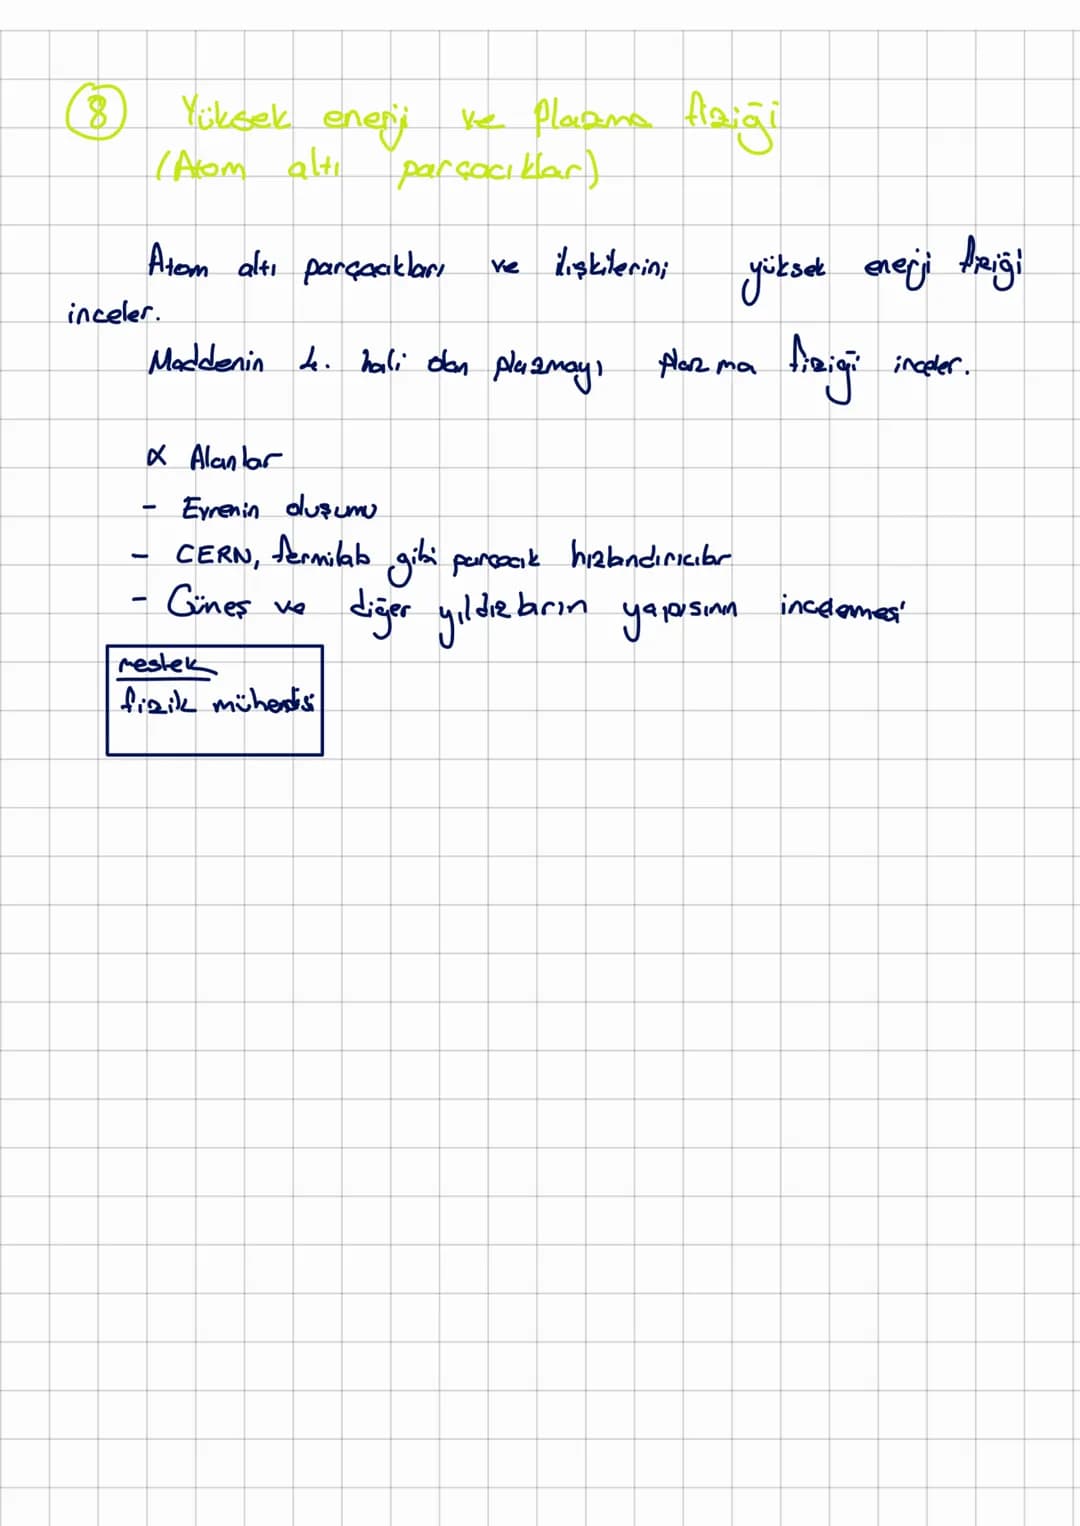 8 Yüksek enerji ve Plazma fiziği
(Atom altı parçacıklar)
Atom altı parçacıkları ve ilişkilerini yüksek enerji fiziği
inceler.
Maddenin 4. hali olan plazmayı plazma fiziği inceler.
α Alanlar
- Evrenin oluşumu
- CERN, fermilab gibi parçacık hızlandırıcılar
- Güneş ve diğer yıldızların yapısının incelemesi
meslek
fizik mühendisi